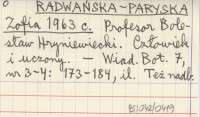 RADWAŃSKA-PARYSKA
Zofia 1963 c. Profesor Bole-
sław Hryniewiecki. Człowiek
i uczony. — Wiad. Bot. 7,
nr 3-4: 173-184, il. Też nadb.
BS/042/0419